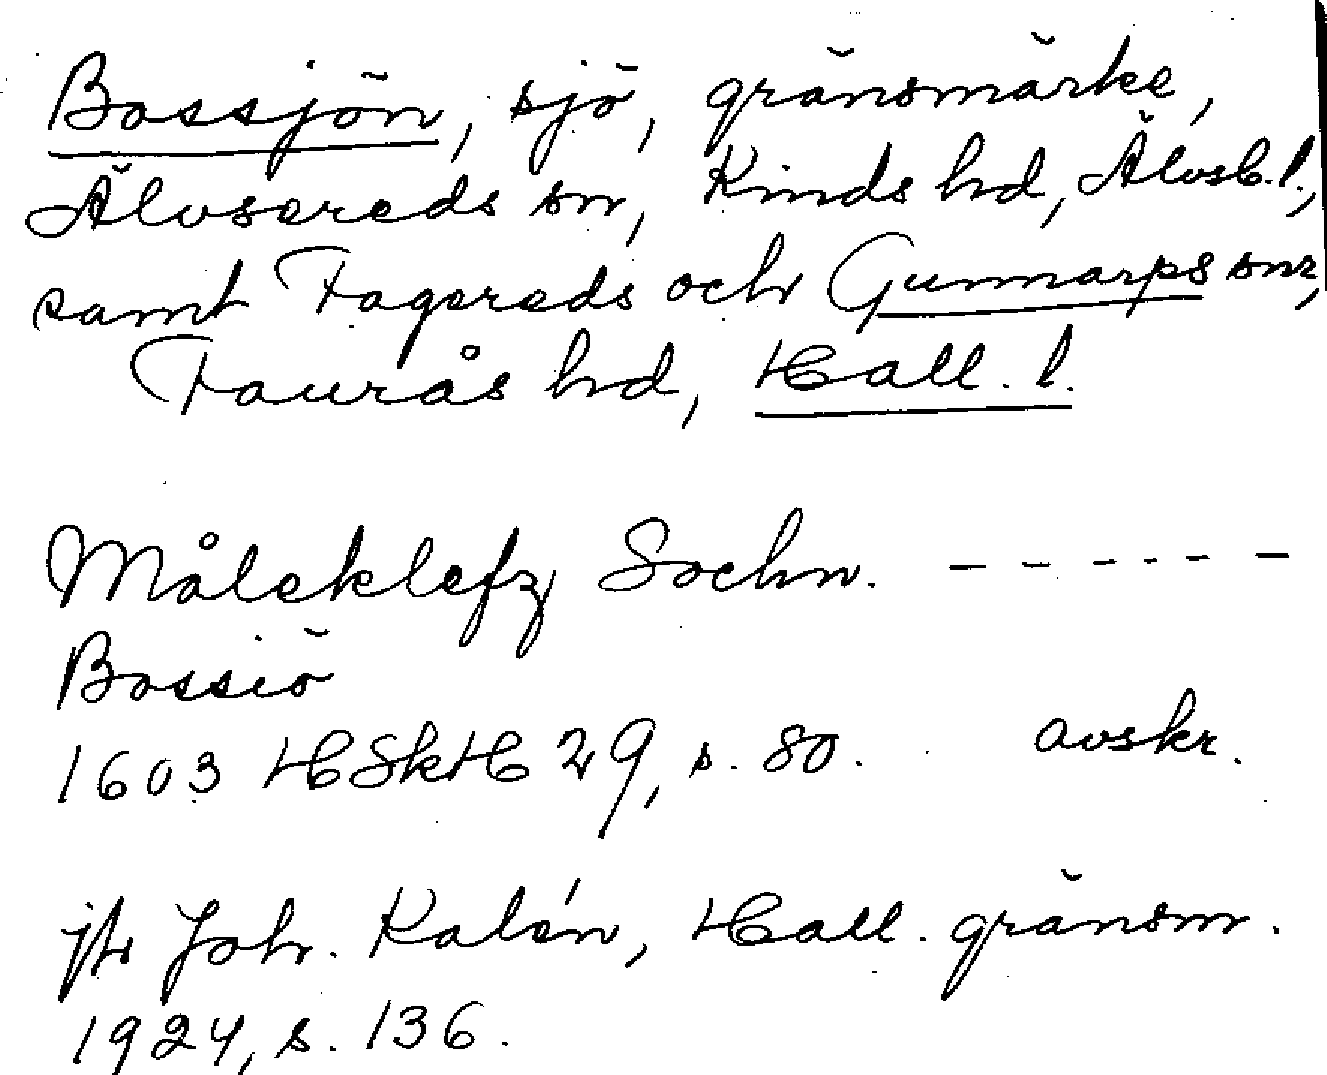 Bossjön, sjö, gränsmärke,
Älvsereds sn, Kinds hd, Älvsb. l.,
samt Fagereds och Gunnarps snr,
Faurås hd, Hall. l.
Måleklefz Sochn. - - - - - -
Bossiö
1603 HSkH 29, s. 80. avskr.
jfr Joh. Kalén, Hall. gränsm.
1924, s. 136.